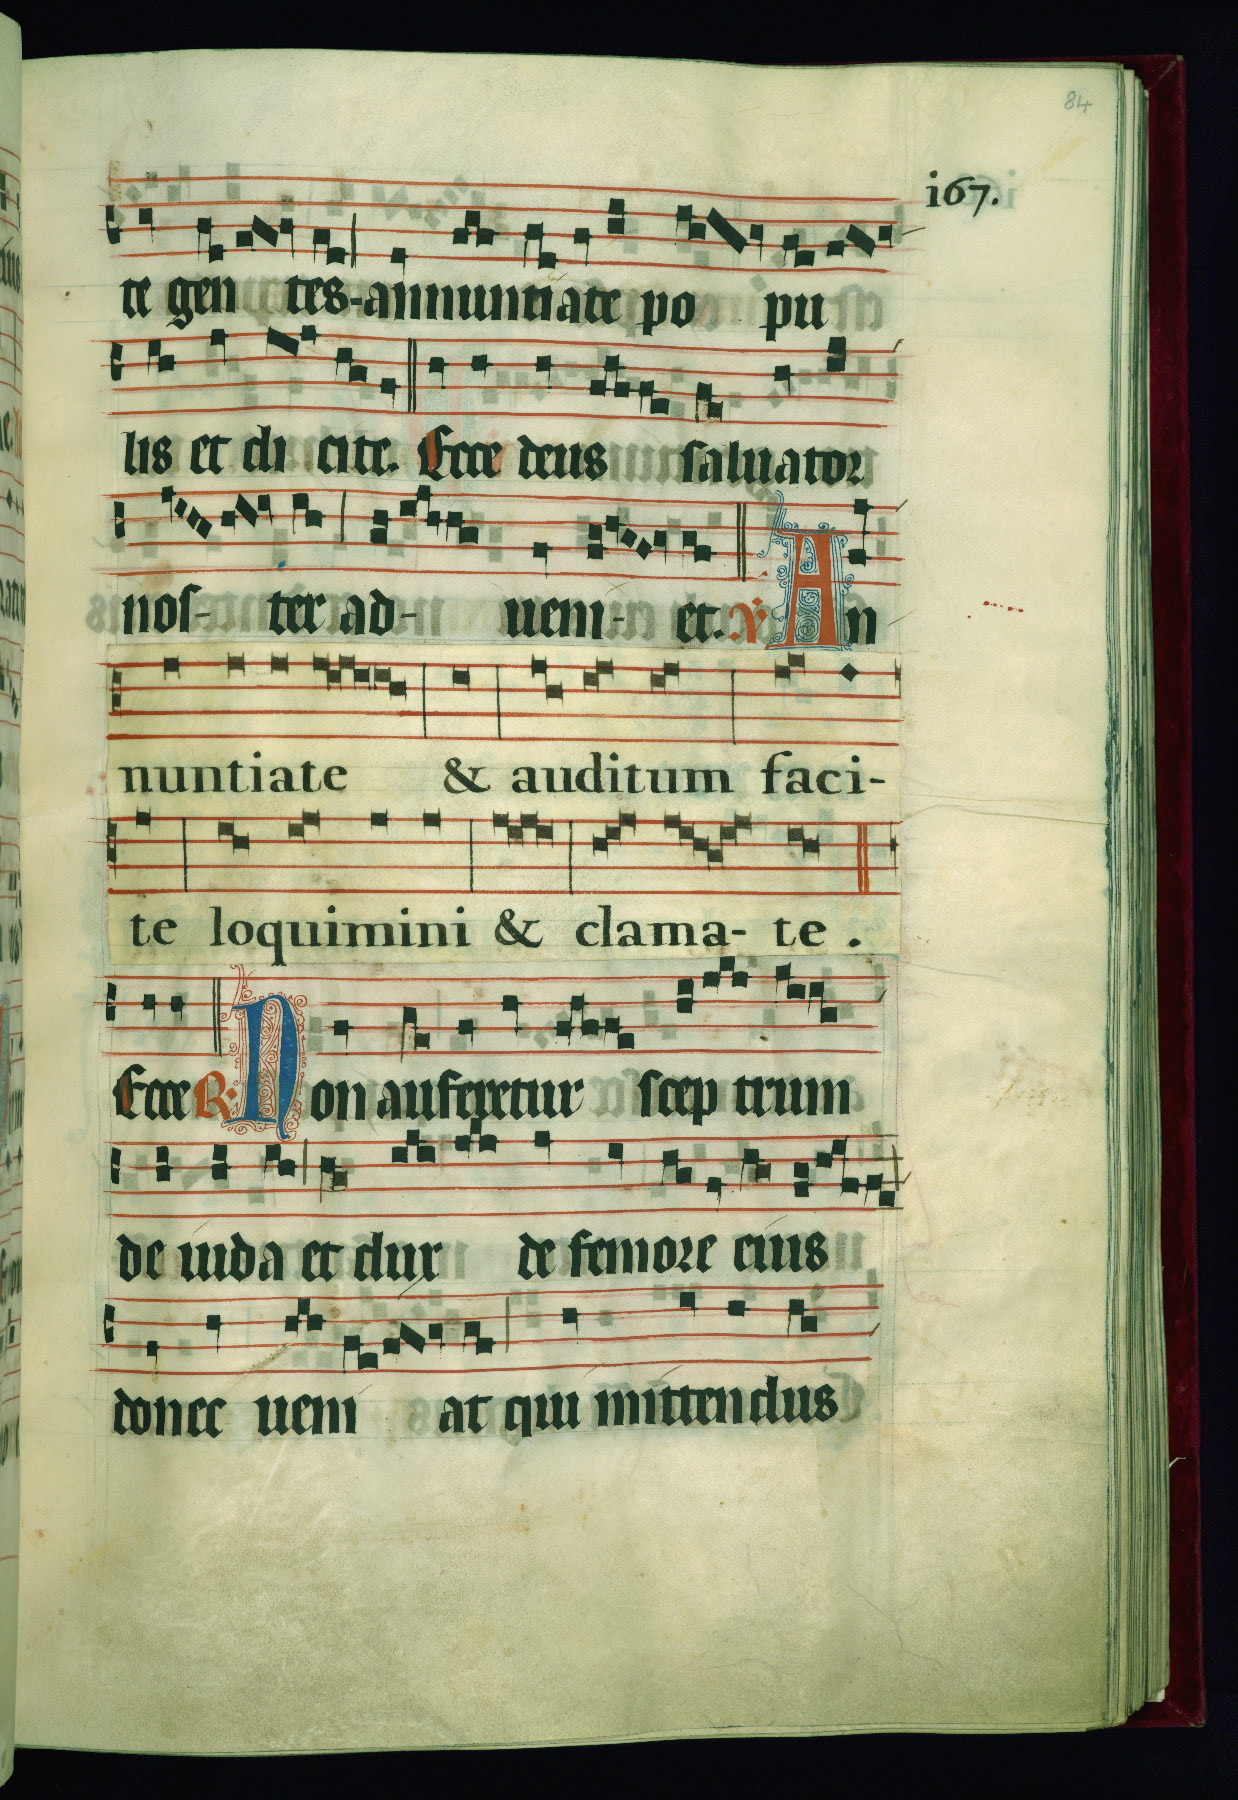 84
i67.
te gen tes-annuntiate po pu
lis et di cite. Ecce deus saluator
nos- ter ad- ueni- et. V. An
nuntiate & auditum faci-
te loquimini & clama- te .
Ecce R. Non auferetur scep trum
de iuda et dux de femore eius
donec ueni at qui mittendus